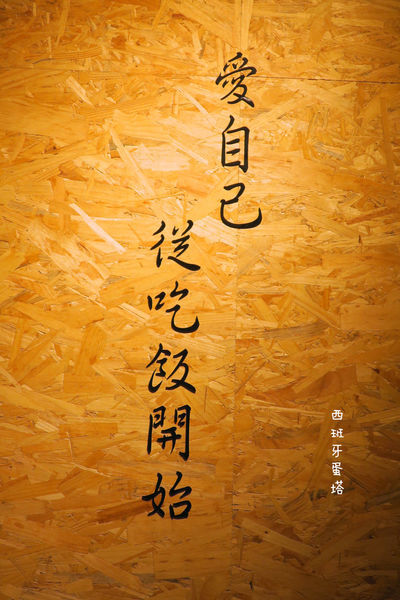 愛自己
從吃飯開始
西班牙蛋塔